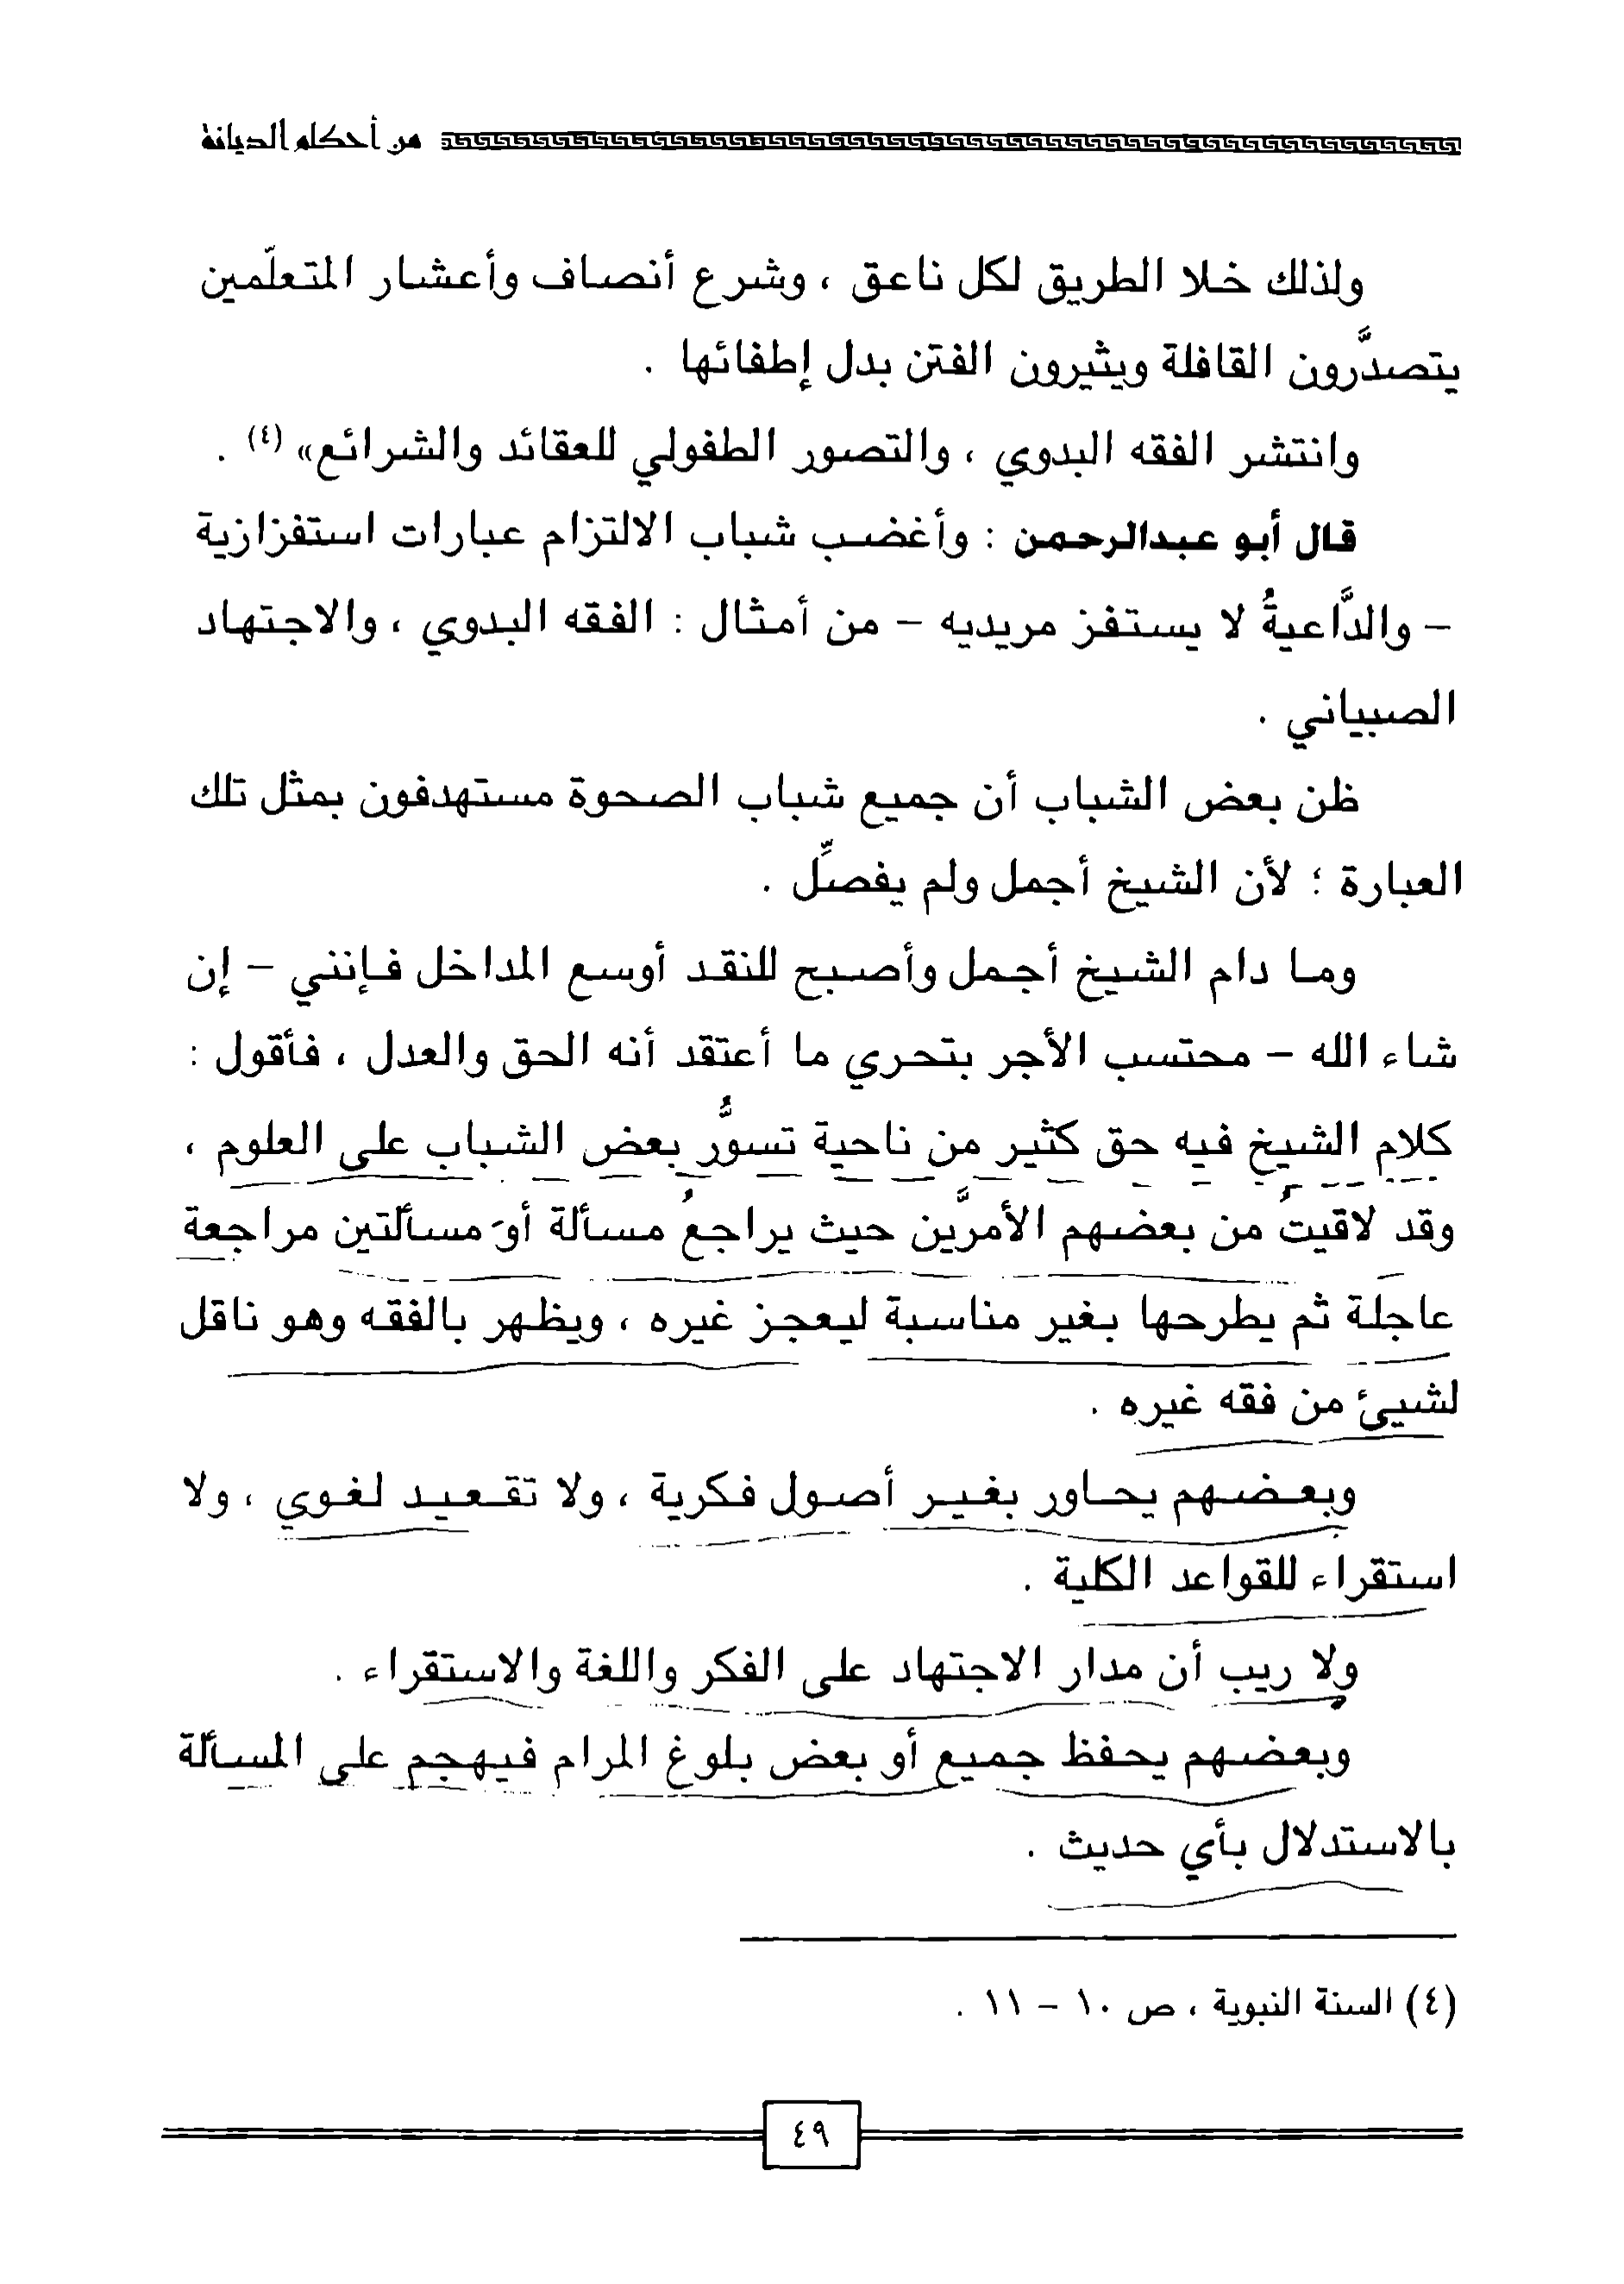 من أحكام الديانة
ولذلك خلا الطريق لكل ناعق ، وشرع أنصاف وأعشار المتعلّمين
يتصدَّرون القافلة ويثيرون الفتن بدل إطفائها .
وانتشر الفقه البدوي ، والتصور الطفولي للعقائد والشرائع» (٤) .
قال أبو عبدالرحمن : وأغضب شباب الالتزام عبارات استفزازية
– والدَّاعيةُ لا يستفز مريديه – من أمثال : الفقه البدوي ، والاجتهاد
الصبياني .
ظن بعض الشباب أن جميع شباب الصحوة مستهدفون بمثل تلك
العبارة ؛ لأن الشيخ أجمل ولم يفصِّل .
وما دام الشيخ أجمل وأصبح للنقد أوسع المداخل فإنني – إن
شاء الله – محتسب الأجر بتحري ما أعتقد أنه الحق والعدل ، فأقول :
كلام الشيخ فيه حق كثير من ناحية تسوُّر بعض الشباب على العلوم ،
وقد لاقيتُ من بعضهم الأمرَّين حيث يراجعُ مسألة أو مسألتين مراجعة
عاجلة ثم يطرحها بغير مناسبة ليعجز غيره ، ويظهر بالفقه وهو ناقل
لشيئ من فقه غيره .
وبعضهم يحاور بغير أصول فكرية ، ولا تقعيد لغوي ، ولا
استقراء للقواعد الكلية .
ولا ريب أن مدار الاجتهاد على الفكر واللغة والاستقراء .
وبعضهم يحفظ جميع أو بعض بلوغ المرام فيهجم على المسألة
بالاستدلال بأي حديث .
(٤) السنة النبوية ، ص ١٠ – ١١ .
٤٩